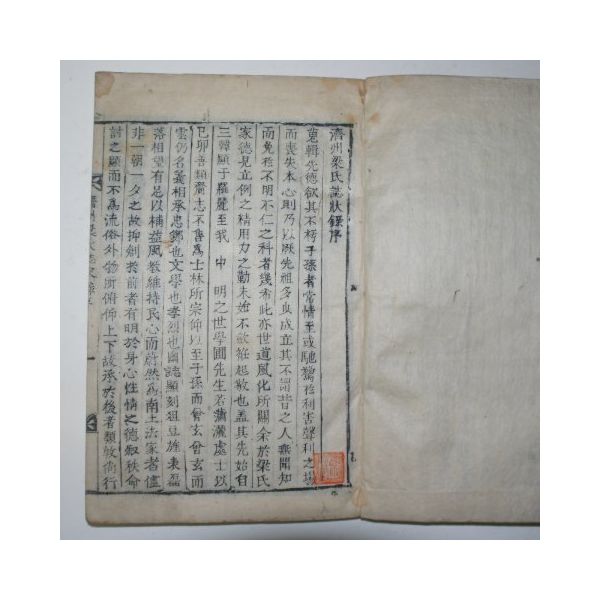 濟州梁氏誌狀錄序
蒐輯先德欲其不朽子孫者常情至或馳騖於利害聲利之場
而喪失本心則乃以厥先祖多良成立其不謂昔之人無聞知
而免於不明不仁之科者幾希此亦世道風化所關余於梁氏
家德見立例之精用力之勤未始不欽袵起敬也盖其先始自
三韓顯于羅麗至我 中 明之世學圃先生若瀟灑處士以
己卯善類齎志不售爲士林所宗仰以至子孫而曾玄曾玄而
雲仍名義相承忠鄕也文學也孝烈也幽誌顯刻狙豆旌表磊
落相望有足以補益風敎維持民心而蔚然爲南土法家者儘
非一朝一夕之故抑創於前者有明於身心性情之德叙秩命
討之顯而不爲流俗外物所俯仰上下故承於後者類敦尙行